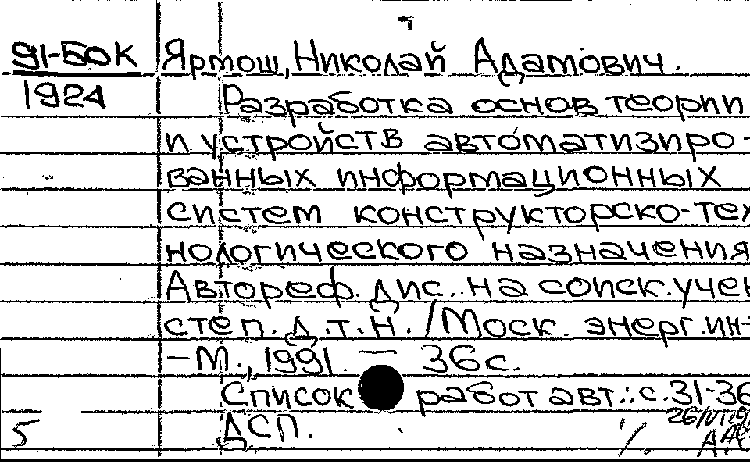 91-БОК Ярмош, Николай Адамович.
1924 Разработка основ теории
и устройств автоматизиро-
ванных информационных
систем конструкторско-тех
нологического назначения
Автореф. дис. на соиск. учен
степ. д.т.н. /Моск. энерг. ин-
-М., 1991 — 36с.
Список работ авт.: с.31-36
5 ДСП.